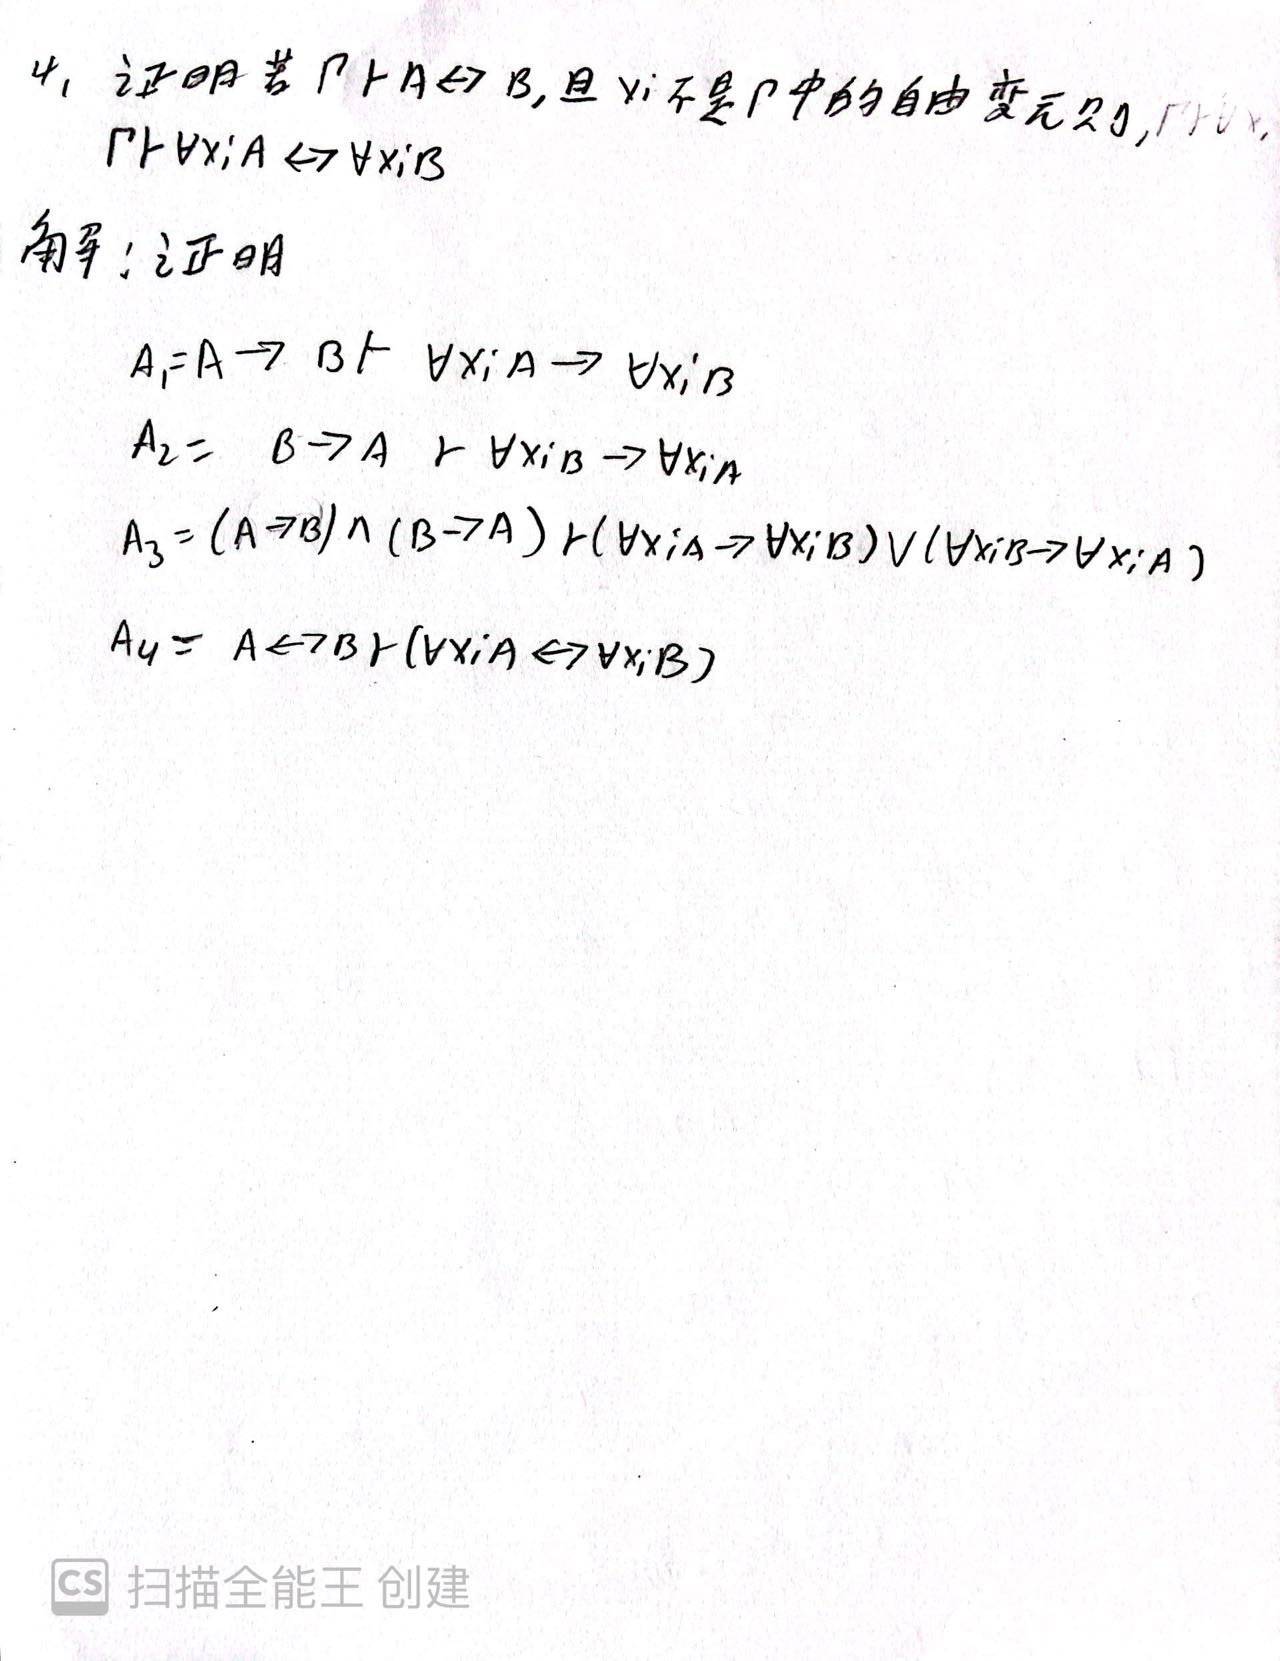 4, 证明若Γ⊢A↔B,且xi不是Γ中的自由变元则,Γ⊢∀x,
Γ⊢∀xiA↔∀xiB
解:证明
A₁=A→B⊢ ∀xiA→∀xiB
A₂= B→A ⊢ ∀xiB→∀xiA
A₃=(A→B)∧(B→A)⊢(∀xiA→∀xiB)∨(∀xiB→∀xiA)
A₄= A↔B⊢(∀xiA↔∀xiB)
CS 扫描全能王 创建